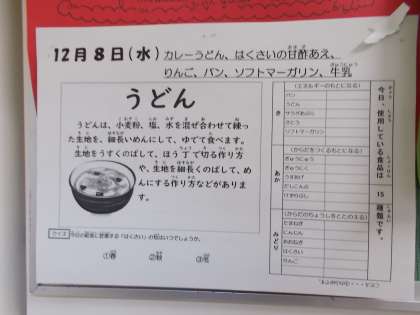 12月8日(水) カレーうどん、はくさいの甘酢あえ、
りんご、パン、ソフトマーガリン、牛乳
うどん
うどんは、小麦粉、塩、水を混ぜ合わせて練っ
た生地を、細長いめんにして、ゆでて食べます。
生地をうすくのばして、ほう丁で切る作り方
や、生地を細長くのばして、め
んにする作り方などがありま
す。
クイズ 今日の給食に登場する「はくさい」の旬はいつでしょうか。
①春 ②秋 ③冬
今日、使用している食品は、15種類です。
き
(エネルギーのもとになる)
パン
うどん
サラダあぶら
さとう
ソフトマーガリン
あか
(からだをつくるもとになる)
ぎゅうにゅう
ぎゅうにく
みどり
(からだのちょうしをととのえる)
たまねぎ
にんじん
はくさい
りんご